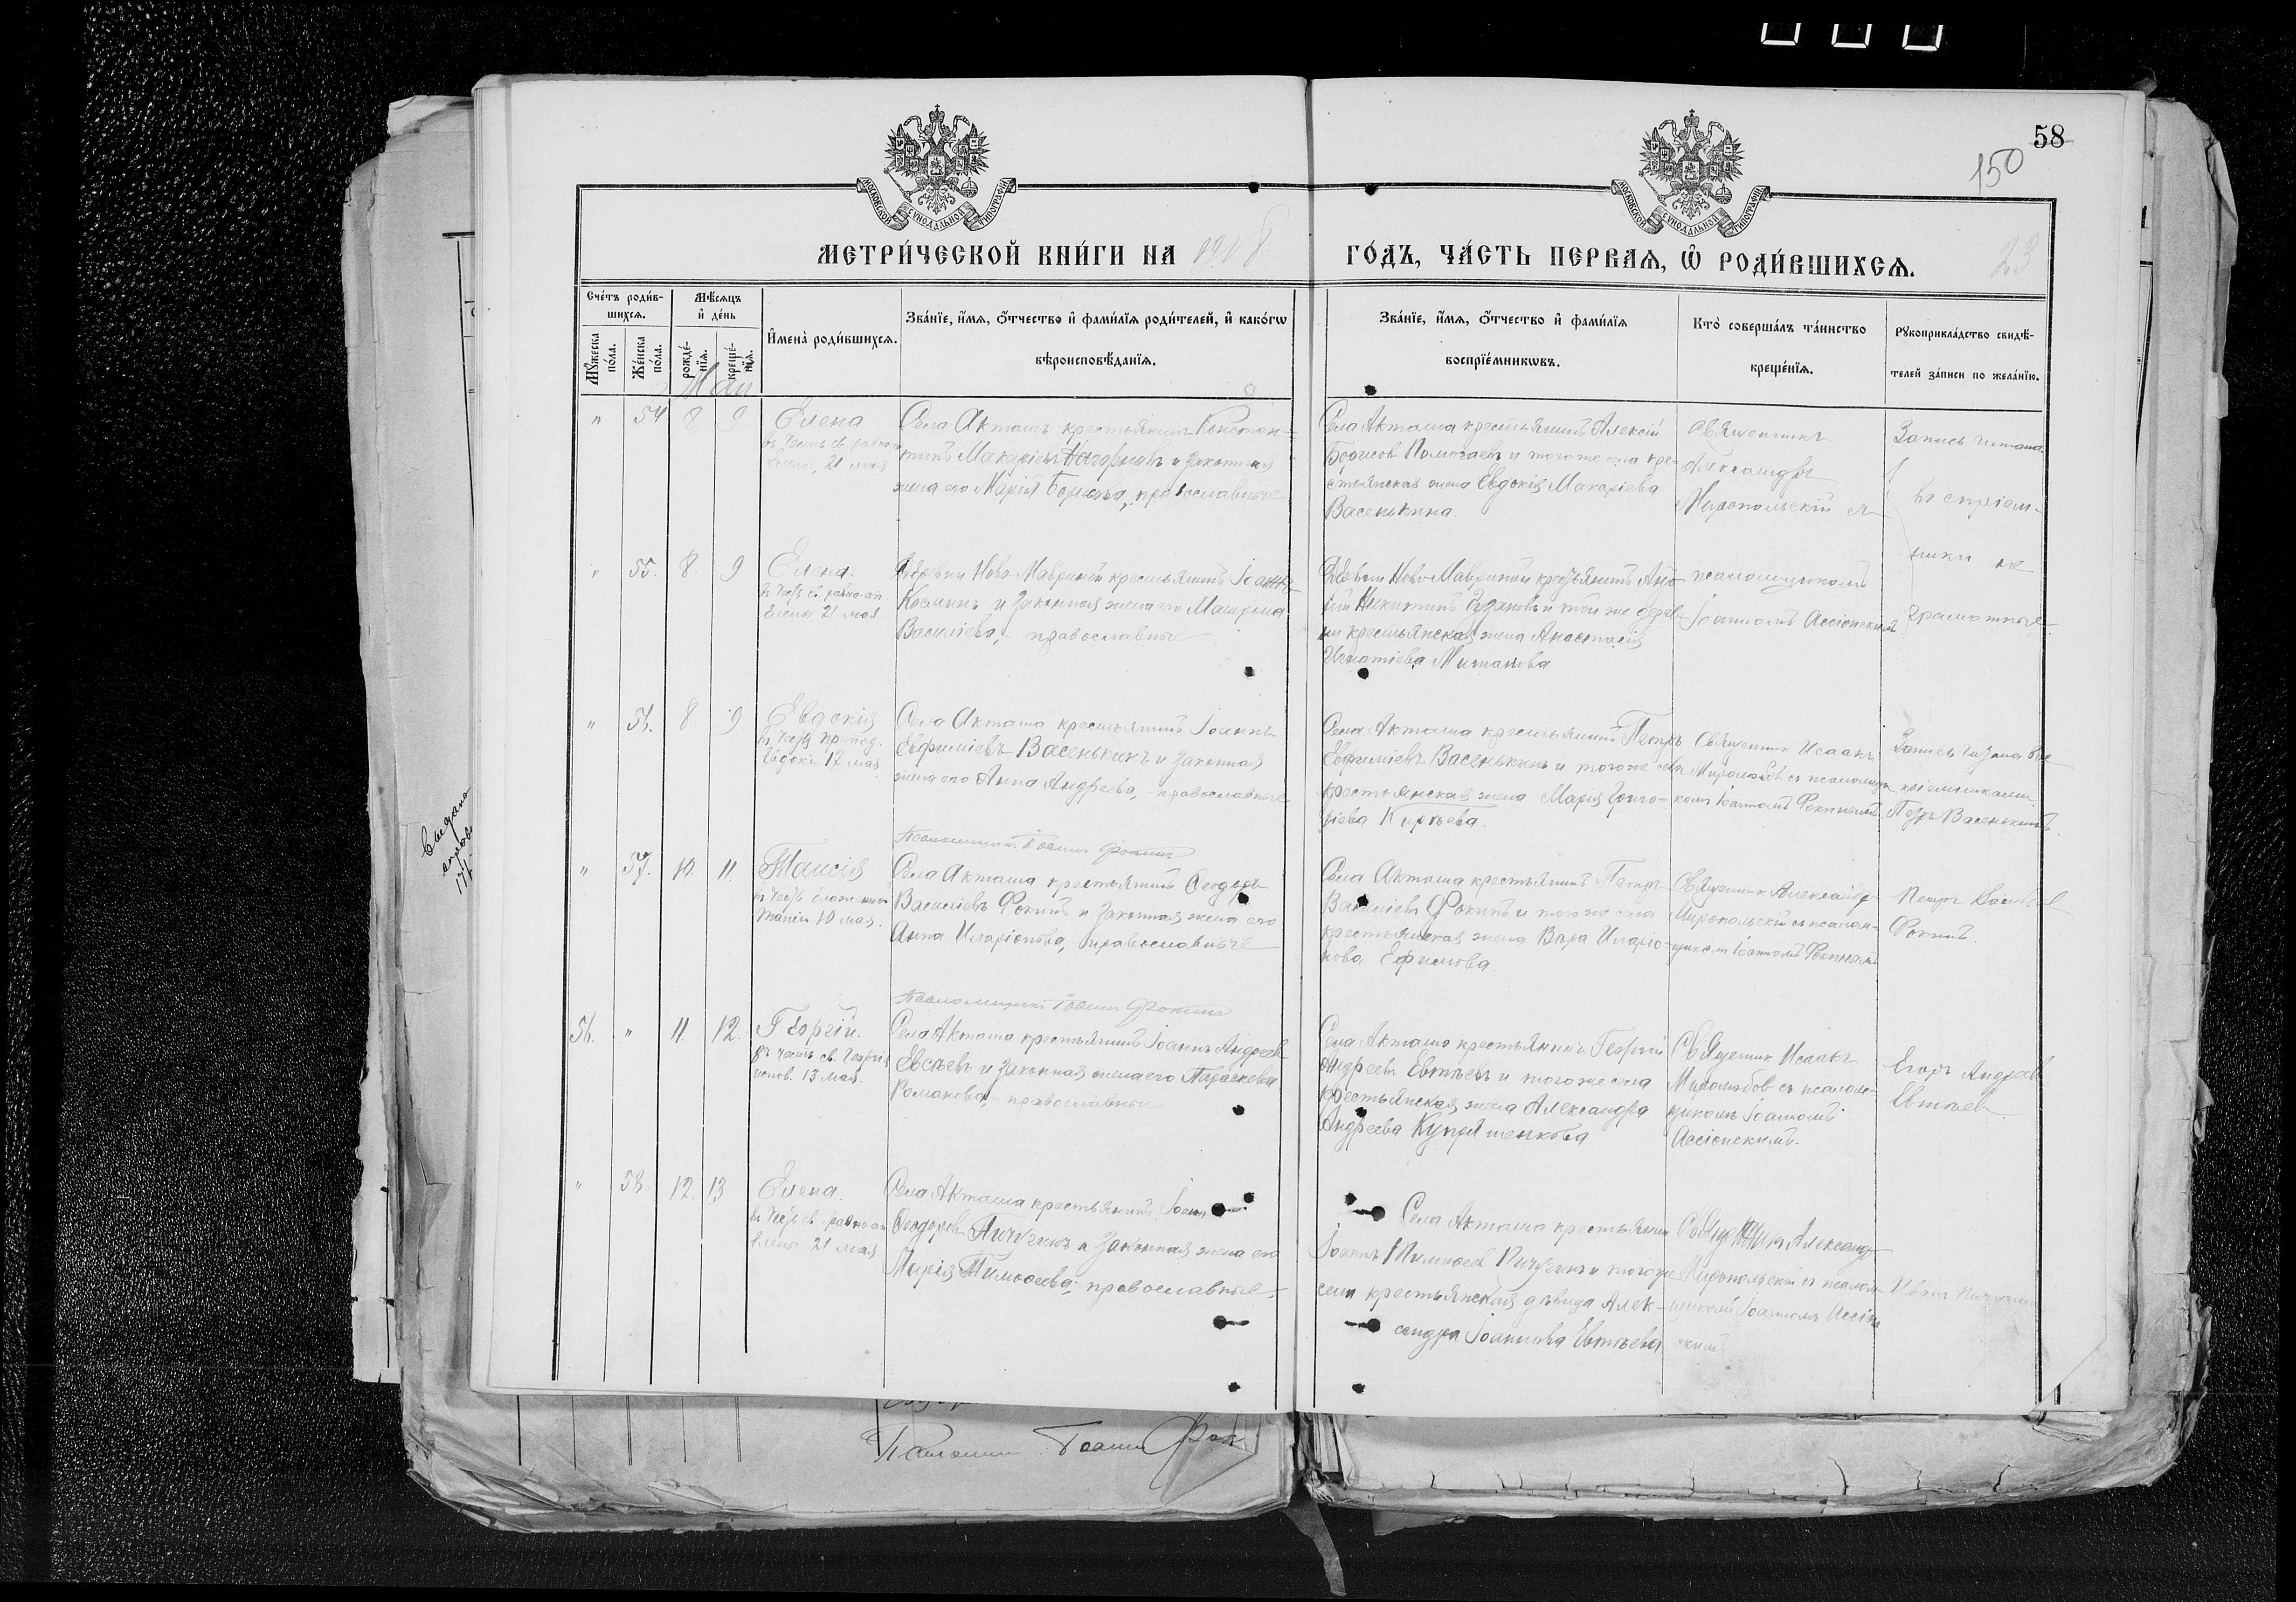 58
150
МОСКОВСКОЙ СѴНОДАЛЬНОЙ ТИПОГРАФІИ
МОСКОВСКОЙ СѴНОДАЛЬНОЙ ТИПОГРАФІИ
МЕТРИ́ЧЕСКОЙ КНИ́ГИ НА 1908
ГО́ДЪ, ЧА́СТЬ ПЕ́РВАЯ, Ѡ҆ РОДИ́ВШИХСЯ.
23
Сче́тъ роди́в-
шихся.
Мꙋ́жеска по́ла.
Же́нска по́ла.
Мѣ́сяцъ
и҆ де́нь
рожде́-
нїя.
креще́-
нїя.
Май
И҆мена̀ роди́вшихся.
Зва́нїе, и҆́мя, о҆́тчество и҆ фами́лїя роди́телей, и҆ како́гѡ
вѣроисповѣ́данїя.
Зва́нїе, и҆́мя, о҆́тчество и҆ фами́лїя
воспрїе́мникѡвъ.
Кто̀ соверша́лъ та́инство
креще́нїя.
Рꙋкоприкла́дство свидѣ́-
телей за́писи по жела́нїю.
" 54 8 9
Елена
въ честь св. равно
Елены, 21 мая
Села Акташъ крестьянинъ Констан-
тинъ Макаріевъ и законная
жена его Марія Борисова, православные
Села Акташа крестьянинъ Алексій
Борисов Помогаевъ и того же села кре-
стьянская жена Евдокія Макаріева
Васенькина.
Священникъ
Александръ
Миропольскій съ
Запись читана
Воспріем-
ники не
грамотные
" 55. 8. 9.
Елена.
въ честь св. равно-ап.
Елены 21 мая.
Деревни Ново-Мавриной крестьянинъ Іоаннъ
Косминъ и законная жена его Матрона
Василіева, - православные
Деревни Ново-Мавриной крестьянинъ
Никитинъ и той же дерев-
ни крестьянская жена Анастасія
Игнатіева
псаломщикомъ
Іоанномъ Ассіонскимъ
" 56. 8 9
Евдокія
въ честь препод.
Евдокіи 17 мая
Села Акташа крестьянинъ Іоаннъ
Евфиміевъ Васенькинъ и законная
жена его Анна Андреева, - православные
Села Акташа крестьянинъ Петръ
Евфиміевъ Васенькинъ и того же села
крестьянская жена Марія Григо-
ріева Киреева.
Священник Исаакъ
Миролюбов съ псаломщи-
комъ Іоанномъ Фокинымъ
Запись читана вос-
пріемниками
Петръ Васенькинъ.
Псаломщикъ Іоаннъ Фокинъ
" 57. 10. 11.
Таисія
въ честь блаженной
Таисіи 10 мая.
Села Акташа крестьянинъ Ѳеодоръ
Василіевъ Фокинъ и законная жена его
Анна Иларіонова, - православные
Села Акташа крестьянинъ Петръ
Василіевъ Фокинъ и того же села
крестьянская жена Вѣра Иларіо-
нова Ефимова.
Священник Александръ
Миропольскій съ псалом-
щиком Іоанномъ Фокинымъ
Петръ Васильев
Фокинъ.
Псаломщикъ Іоаннъ Фокинъ
56. " 11 12.
Георгій.
въ честь св. Георгія
испов. 13 мая.
Села Акташа крестьянинъ Іоаннъ Андреев
Евсѣевъ и законная жена его Параскева
Романова, - православные
Села Акташа крестьянинъ Георгій
Андреевъ Евтѣевъ и того же села
крестьянская жена Александра
Андреева
Священник Исаакъ
Миролюбов съ псалом-
щикомъ Іоанномъ
Ассіонскимъ.
Егоръ Андреев
Евтѣев.
" 58. 12. 13
Елена.
въ честь св. равно-ап.
Елены 21 мая
Села Акташа крестьянинъ Іоаннъ
Ѳеодоровъ Пичугинъ и законная жена его
Марія Тимоѳеева, - православные.
Села Акташа крестьянинъ
Іоаннъ Тимоѳеев Пичугинъ и того же
села крестьянская дѣвица Алек-
сандра Іоаннова Евтѣева
Священник Александръ
Миропольскій съ псалом-
щикомъ Іоанномъ Ассіон-
скимъ
Иванъ Пичугинъ
Псаломщ Іоаннъ Фок